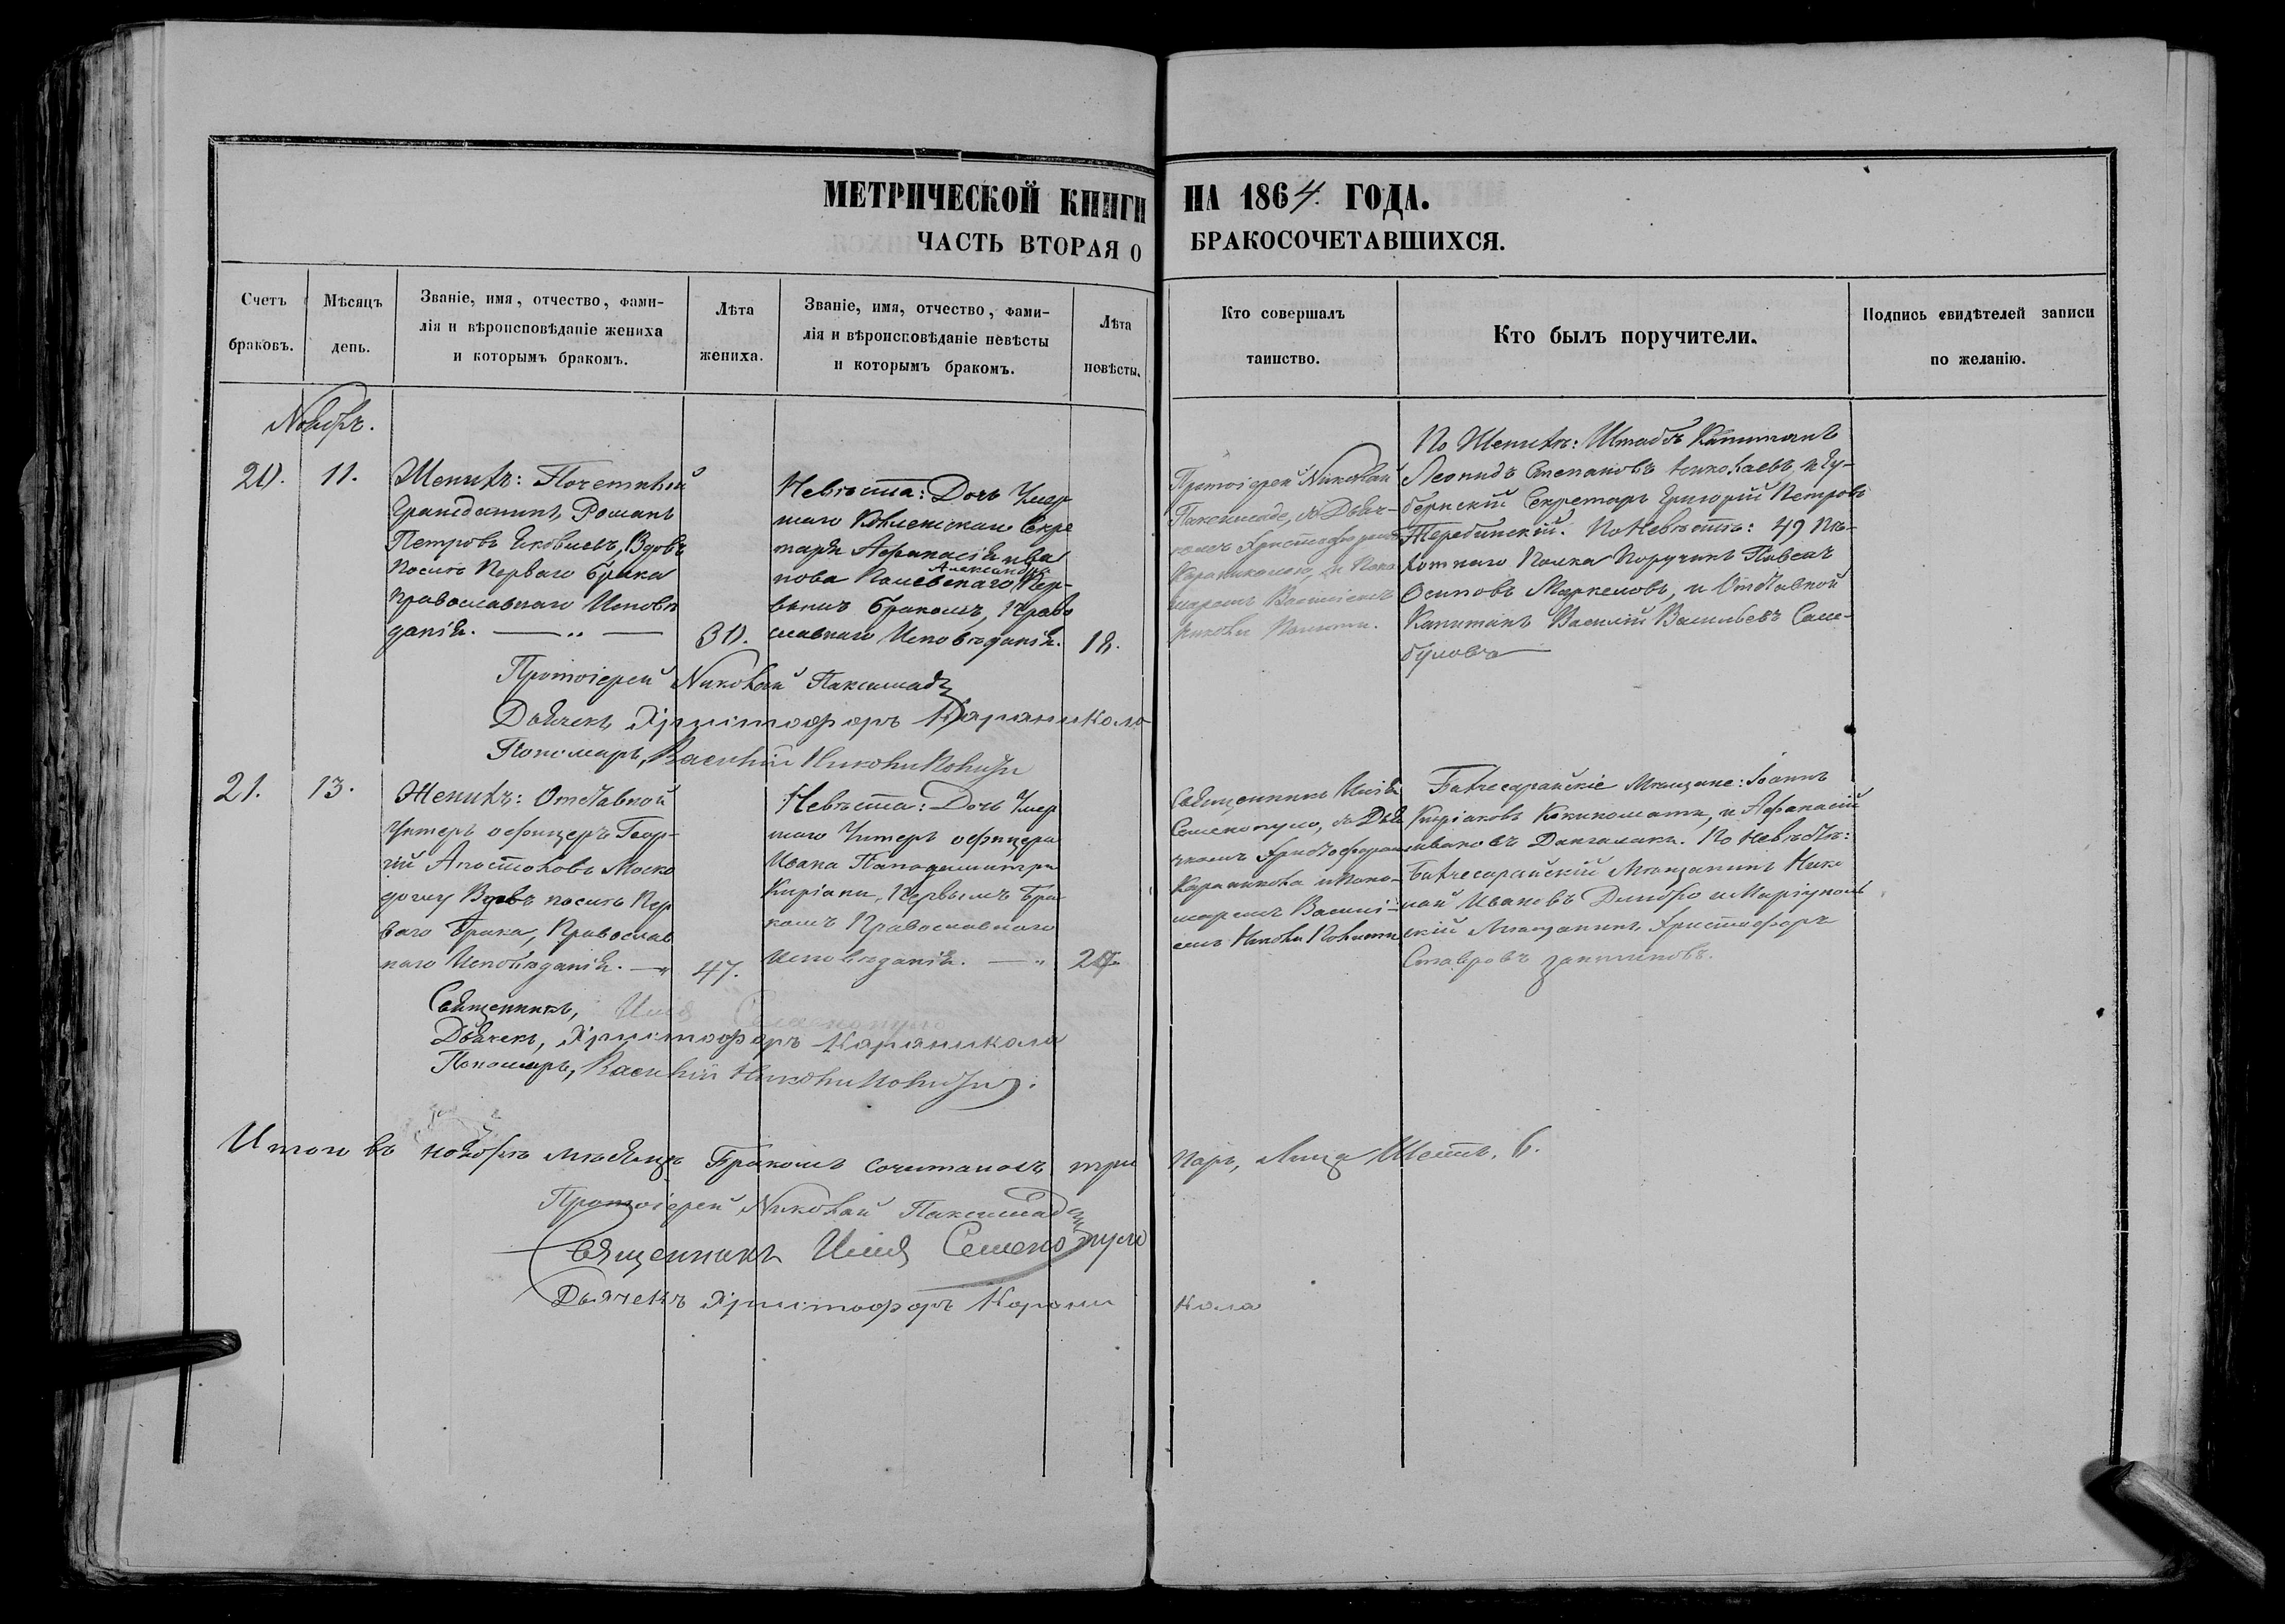 МЕТРИЧЕСКОЙ КНИГИ НА 1864. ГОДА.
ЧАСТЬ ВТОРАЯ О БРАКОСОЧЕТАВШИХСЯ.
Счетъ браковъ.
Мѣсяцъ день.
Званіе, имя, отчество, фами-
лія и вѣроисповѣданіе жениха
и которымъ бракомъ.
Лѣта жениха.
Званіе, имя, отчество, фами-
лія и вѣроисповѣданіе невѣсты
и которымъ бракомъ.
Лѣта невѣсты.
Кто совершалъ
таинство.
Кто былъ поручители.
Подпись свидѣтелей записи
по желанію.
Ноябрь.
20.
11.
Женихъ: Почетный
Гражданинъ Романъ
Петровъ Яковлевъ, Вдовъ
послѣ Перваго брака
православнаго Исповѣ
данія. — " —
30.
Невѣста: Дочь Умер
шаго Секре
таря Афанасія Ива
нова Александра Пер-
вымъ бракомъ, Право
славнаго Исповѣданія.
18.
Протоіерей Николай
съ Дьяч-
комъ Христофоромъ
Караникола, и Поно
маремъ Василіемъ
По Женихѣ: Штабсъ Капитанъ
Леонидъ Степановъ Николаевъ, и Гу-
бернскій Секретарь Григорій Петровъ
По Невѣстѣ: 49 Пѣ-
хотнаго Полка Поручикъ Павелъ
Осиповъ Маркеловъ, и Отставной
Капитанъ Василій Васильевъ
Протоіерей Николай
Дьячекъ, Христофоръ Караникола
Пономарь, Василій
21.
13.
Женихъ: Отставной
Унтеръ офицеръ Геор-
гій Апостоловъ
Вдовъ послѣ Пер
ваго брака, Православ
наго Исповѣданія. — "
47.
Невѣста: Дочь Умер
шаго Унтеръ офицера
Ивана Пападимитри
Киріаки, Первымъ Бра
комъ Православнаго
Исповѣданія. — "
Священникъ Илія
Семенопуло, съ Дья
чкомъ Христофоромъ
Караникола и Поно-
маремъ Василі-
емъ
Бахчесарайскіе Мѣщане: Іоаннъ
Киріаковъ и Афанасій
Ивановъ По Невѣстѣ:
Бахчесарайскій Мѣщанинъ Нико
лай Ивановъ и Маріуполь
скій Мѣщанинъ Христофоръ
Ставровъ
Священникъ, Илія Семенопуло
Дьячекъ, Христофоръ Караникола
Пономарь, Василій
Итого въ ноябрѣ мѣсяцѣ Бракомъ сочиталось три Паръ, Лица Шесть. 6.
Протоіерей Николай
Священникъ Илія Семенопуло
Дьячекъ Христофоръ Караникола